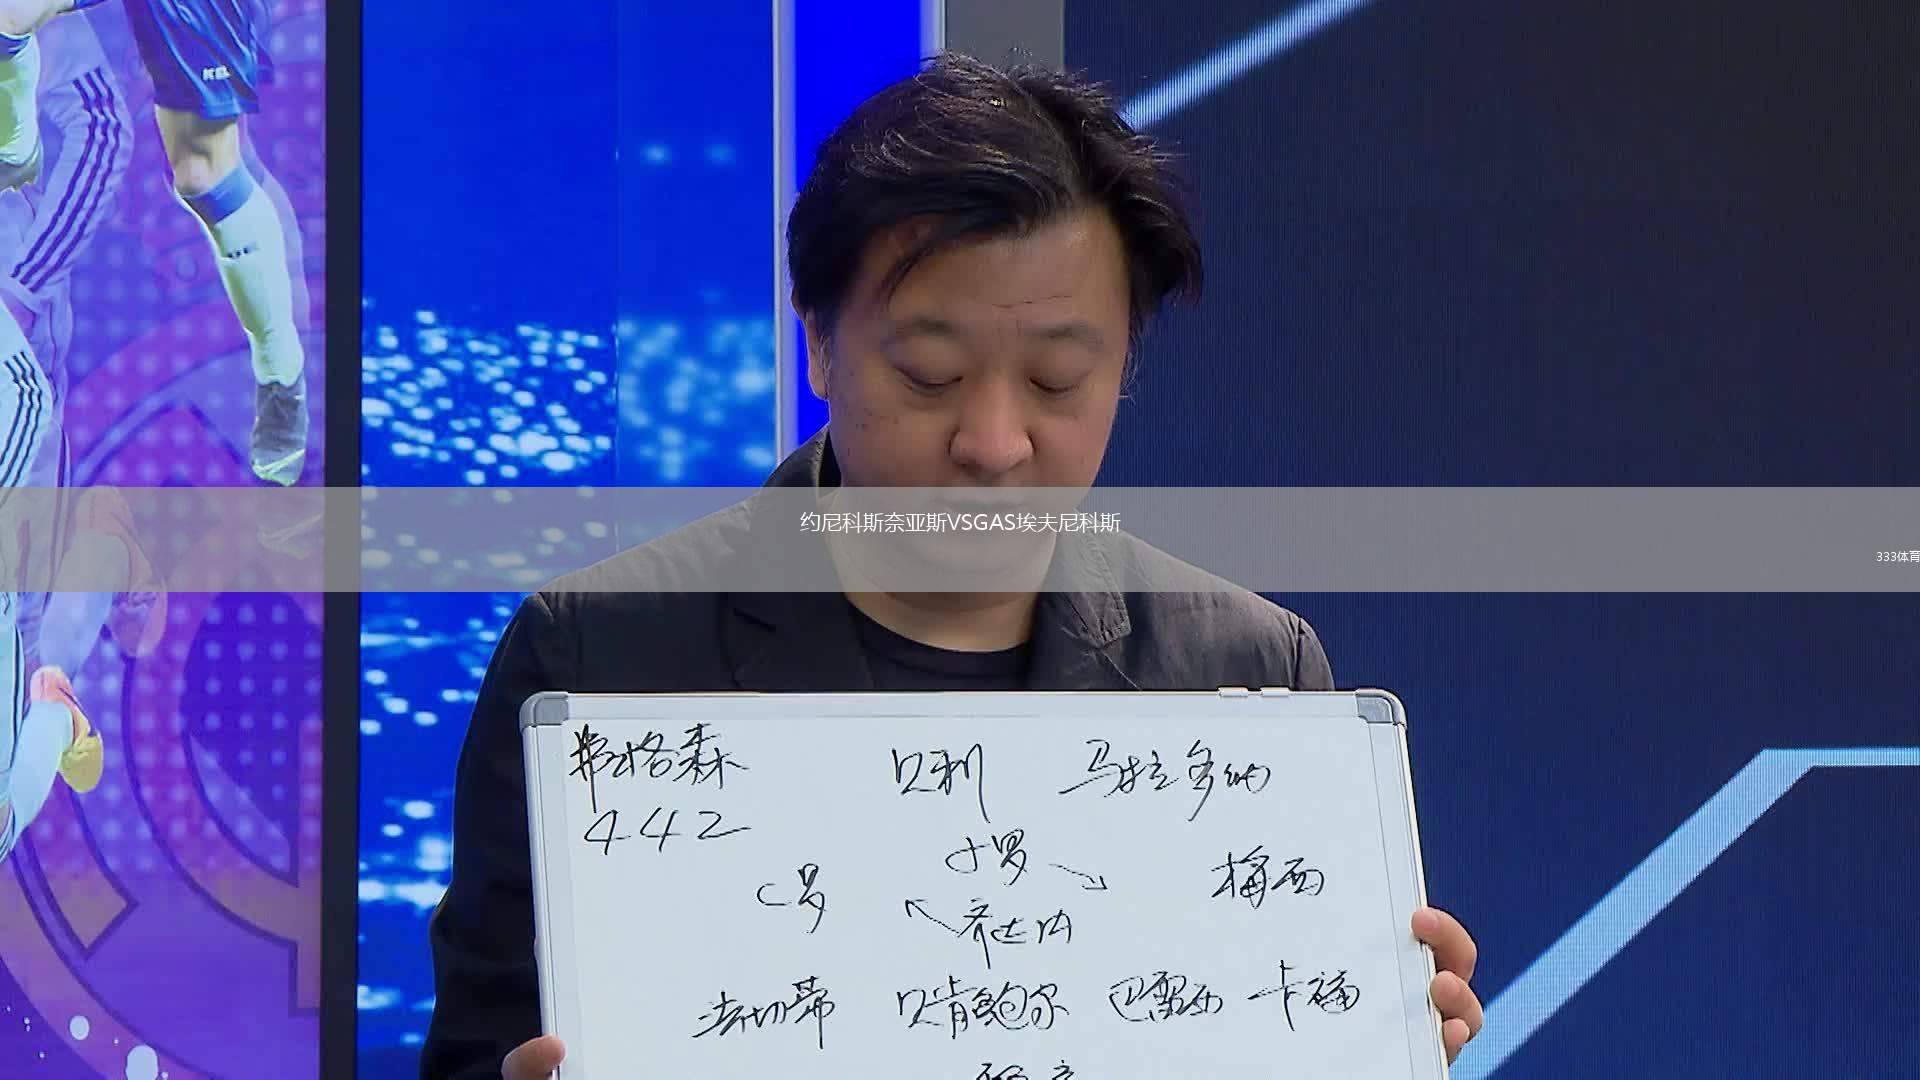 KELME
约尼科斯奈亚斯VSGAS埃夫尼科斯
333体育
弗格森 贝利 马拉多纳
442
小罗
C罗 梅西
齐达内
法切蒂 贝肯鲍尔 巴雷西 卡福